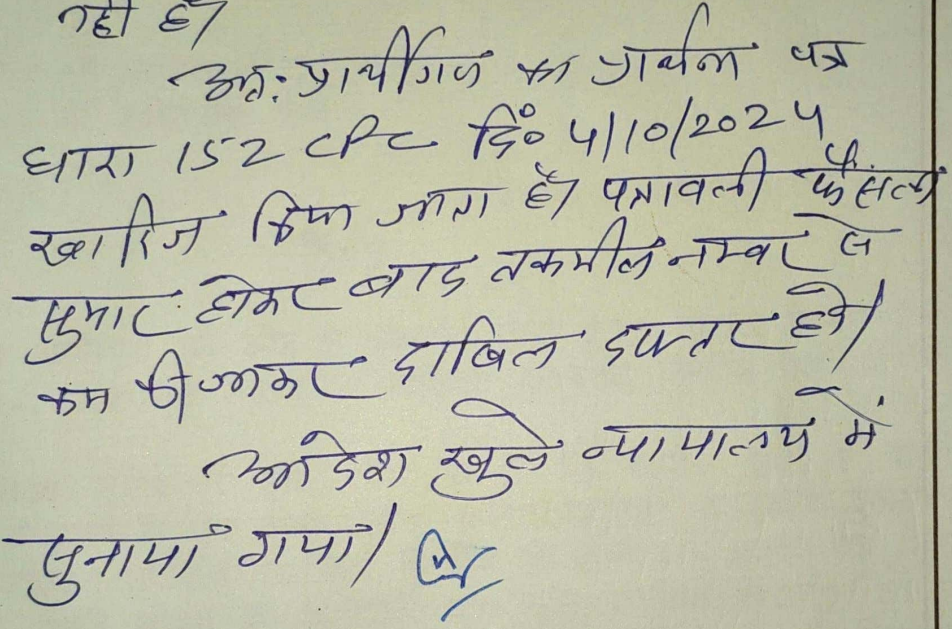 नहीं है।
अतः प्रार्थीगण का प्रार्थना पत्र
धारा 152 CPC दि० 4/10/2024
खारिज किया जाता है। पत्रावली फैसल
सुमार होकर बाद तकमील नम्बर से
कम की जाकर दाखिल दफ्तर हो।
आदेश खुले न्यायालय में
सुनाया गया।